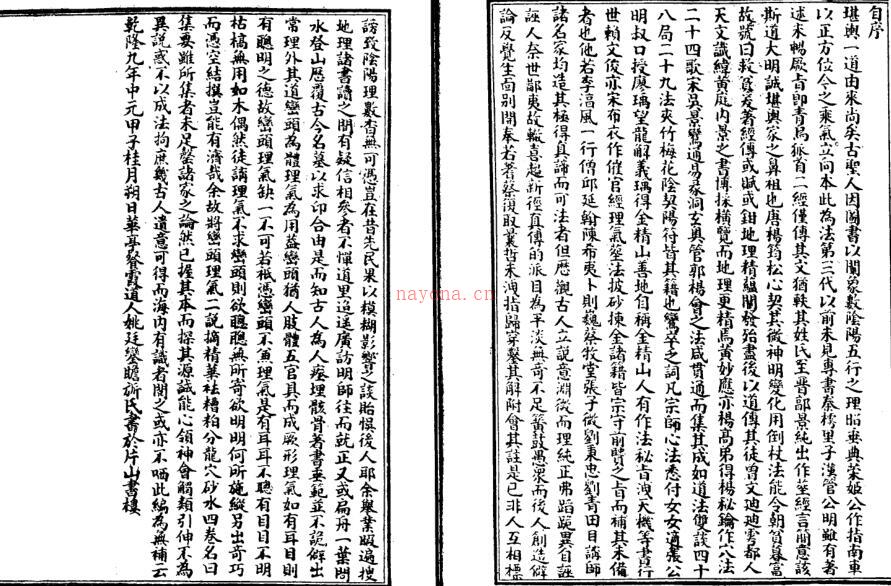 自序
堪輿一道由來尚矣古聖人因圖書以闡象數陰陽五行之理昭垂典策姬公作指南車
以正方位令之乘氣立向本此為法第三代以前未見專書秦樗里子漢管公明雖有著
述未暢厥旨即青烏狐首二經僅傳其文猶軼其姓氏至晉郭景純出作葬經言簡意該
斯道大明誠堪輿家之鼻祖也唐楊筠松心契其微神明變化用倒杖法能令朝貧暮富
故號曰救貧爰著經傳或賦或鈐地理精蘊闡發殆盡後以道傳其徒曾文迪迪雩都人
天文讖緯黃庭內景之書博採橫覽而地理更精焉黃妙應亦楊高弟得楊秘鑰作八法
二十四歌宋吳景鸞通易察洞玄奧管郭楊曾之法咸貫通而集其成如道法雙談四十
八局二十九法夾竹梅花陰契陽符皆其籍也鸞卒之詞凡宗師心法悉付女女適張公
明叔口授廖瑀望龍解義瑀得金精山善地自稱金精山人有作法秘旨洩天機等書行
世賴文俊亦宋布衣作催官經理氣葬法披砂揀金諸籍皆宗守前賢之旨而補其未備
者也他若李淳風一行僧邱延翰陳希夷卜則巍蔡牧堂張子微劉秉忠劉青田目講師
諸名家均造其極得真諦而可法者但歷觀古人立說意淵微而理純正弗蹈詭異自誣
誣人奈世鄙夷故轍喜起新徑真傳的派目為平淡無奇不足簧鼓愚眾而後人創造僻
論反覺生面別開奉若蓍蔡復取叢哲未洩指歸穿鑿其解附會其註是己非人互相標
謗致陰陽理數杳無可憑豈在昔先民果以模糊影響之談貽悞後人耶余舉業暇遍搜
地理諸書讀之間有疑信相參者不憚道里逍遙廣訪明師往而就正又或扁舟一葉問
水登山歷覆古今名墓以求印合由是而知古人為人瘞埋骸骨著書垂範並不詭僻出
常理外其道巒頭為體理氣為用葢巒頭猶人肢體五官具而成厥形理氣如有耳目則
有聰明之德故巒頭理氣缺一不可若衹憑巒頭不兼理氣是有耳耳不聰有目目不明
枯槁無用如木偶然徒講理氣不求巒頭則欲聰聰無所寄欲明明何所施縱另出奇巧
而憑空結撰豈能有濟哉余故將巒頭理氣二說摘精華袪糟粕分龍穴砂水四卷名曰
集要雖所集者未足罄諸家之論然已握其本而探其源誠能心領神會觸類引伸不為
異說惑不以成法拘庶幾古人遺意可得而海內有識者閱之或亦不哂此編為無補云
乾隆九年中元甲子桂月朔日華亭餐霞道人姚廷鑾瞻旂氏書於片山書樓
nayona.cn